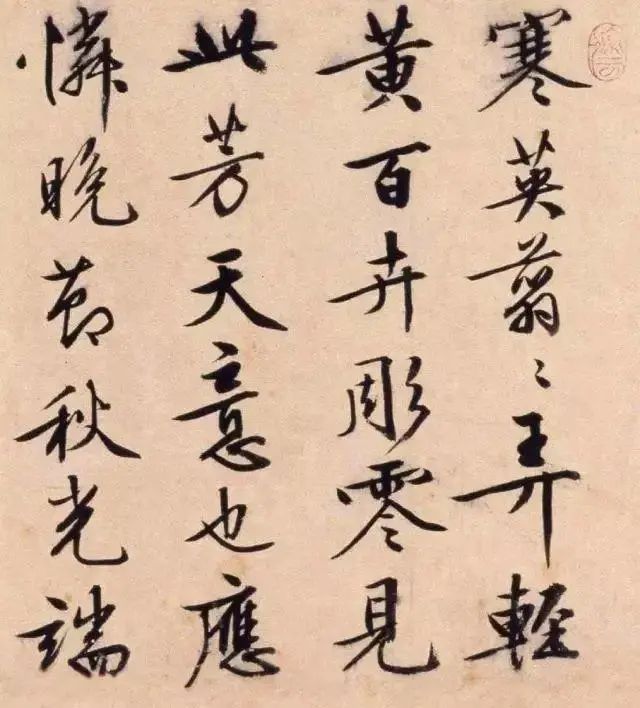 寒英翦〻弄輕
黃百卉彫零見
此芳天意也應
憐晚節秋光端